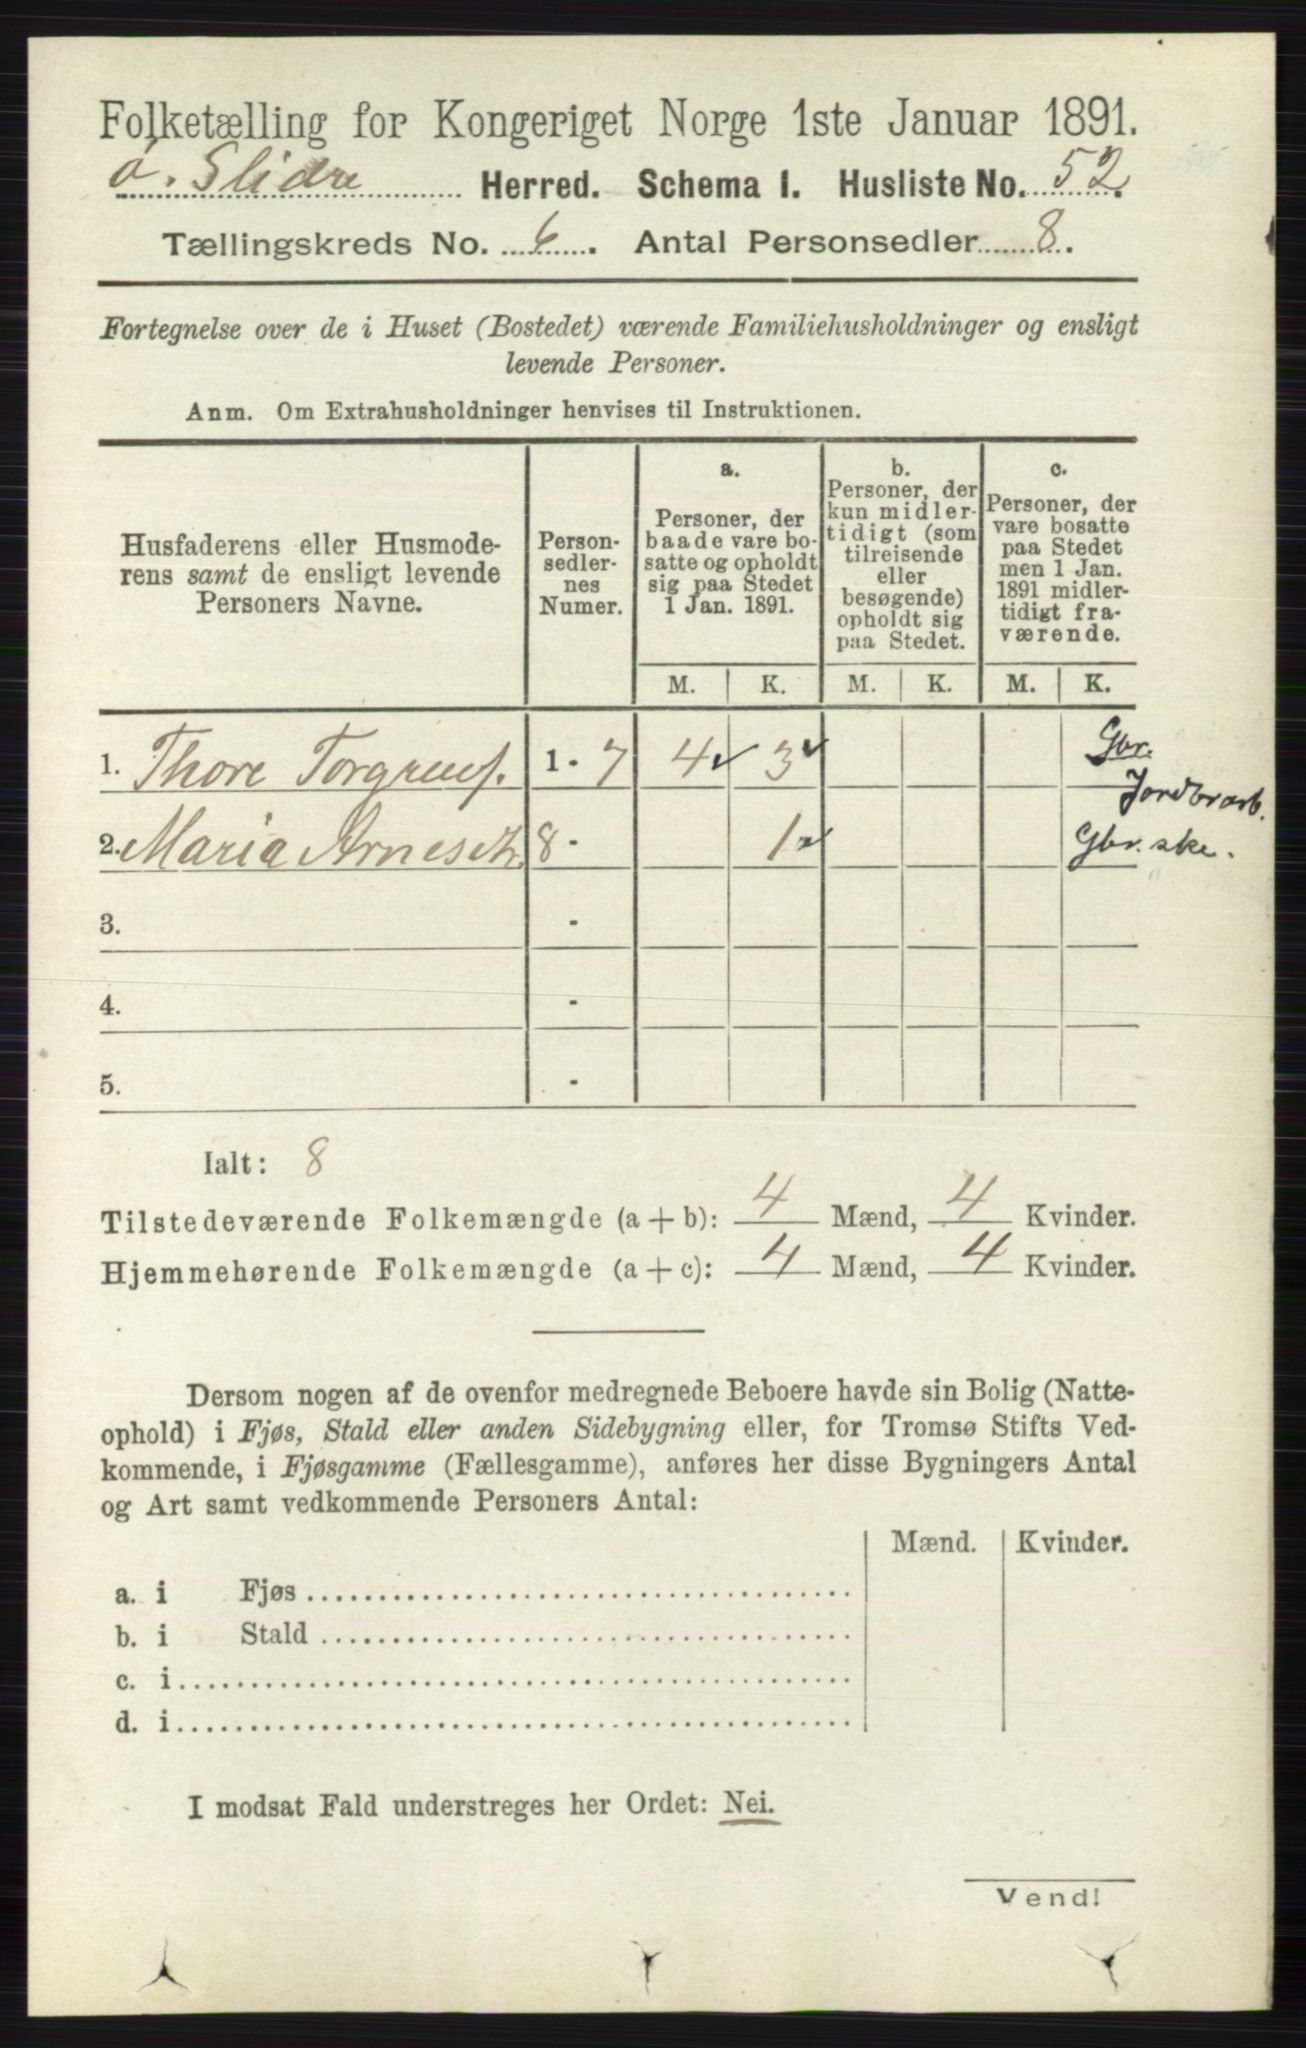 Folketælling for Kongeriget Norge 1ste Januar 1891.
ö. Slidre Herred. Schema I. Husliste No. 52.
Tællingskreds No. 6. Antal Personsedler 8.
Fortegnelse over de i Huset (Bostedet) værende Familiehusholdninger og ensligt
levende Personer.
Anm. Om Extrahusholdninger henvises til Instruktionen.
Husfaderens eller Husmode-
rens samt de ensligt levende
Personers Navne.
Person-
sedler-
nes
Numer.
a.
Personer, der
baade vare bo-
satte og opholdt
sig paa Stedet
1 Jan. 1891.
b.
Personer, der
kun midler-
tidigt (som
tilreisende
eller
besøgende)
opholdt sig
paa Stedet.
c.
Personer, der
vare bosatte
paa Stedet
men 1 Jan.
1891 midler-
tidigt fra-
værende.
M. K. M. K. M. K.
1. Thore Torgrims. 1 - 7 4 3 Gbr.
Jordbrarb.
2. Maria Arnesdt. 8 - 1 Gbr. ske.
3. -
4. -
5. -
Ialt: 8
Tilstedeværende Folkemængde (a + b): 4 Mænd, 4 Kvinder.
Hjemmehørende Folkemængde (a + c): 4 Mænd, 4 Kvinder.
Dersom nogen af de ovenfor medregnede Beboere havde sin Bolig (Natte-
ophold) i Fjøs, Stald eller anden Sidebygning eller, for Tromsø Stifts Ved-
kommende, i Fjøsgamme (Fællesgamme), anføres her disse Bygningers Antal
og Art samt vedkommende Personers Antal:
Mænd. Kvinder.
a. i Fjøs
b. i Stald
c. i
d. i
I modsat Fald understreges her Ordet: Nei.
Vend!